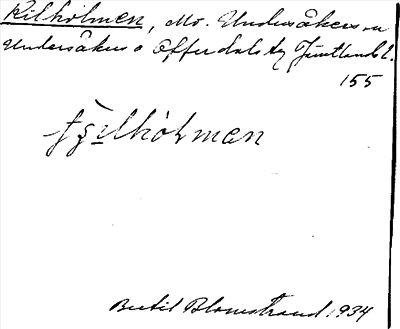 Kilholmen, Mo. Undersåkers sn
Undersåkers o Offerdals tg Jämtlands l.
155
Bertil Blomstrand 1934